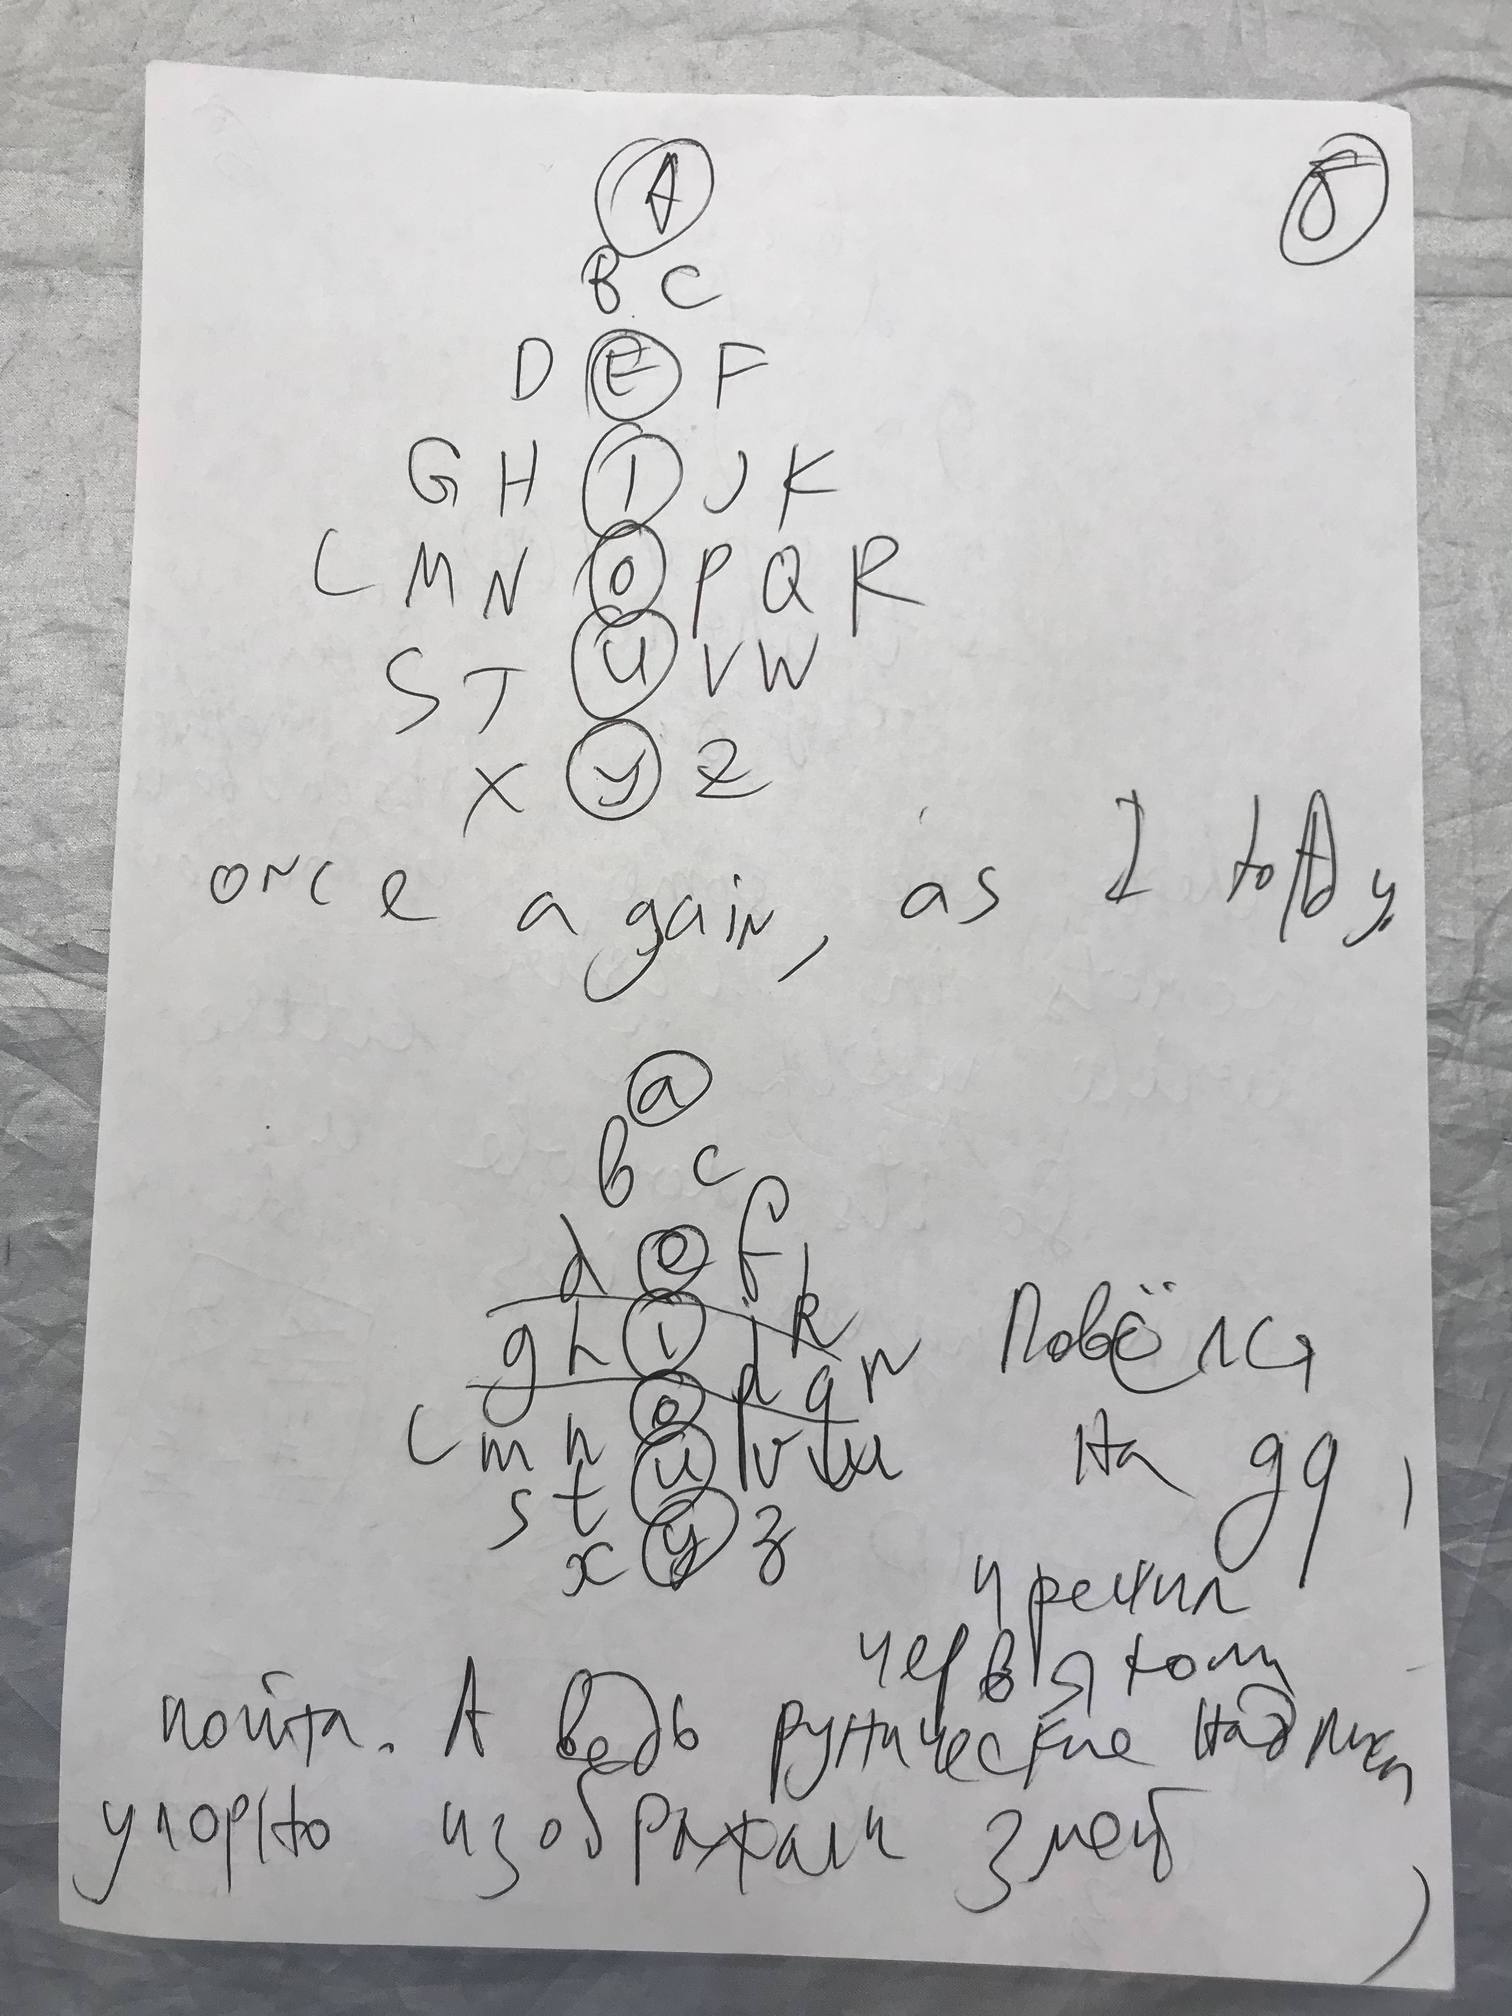 A
Б
B C
D E F
G H I J K
L M N O P Q R
S T U V W
X Y Z
once again, as I told y
a
b c
d e f
g h i j k
l m n o p q r
s t u v w
x y z
Повёлся
на gq,
и решил
червяком
пойти. А ведь рунические надписи
упорно изображали змей
)